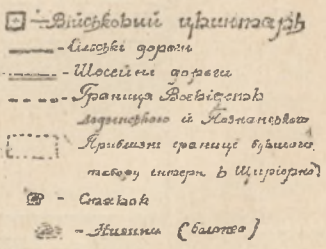 Військовий цвинтарь
- Сільські дороги
- Шосейні дороги
- Границя Воєвідств
лодзинського й Познанського
- Приблизні границі бувшого
табору интерн в Щипіорно
- Ставок
- Низина (болото)